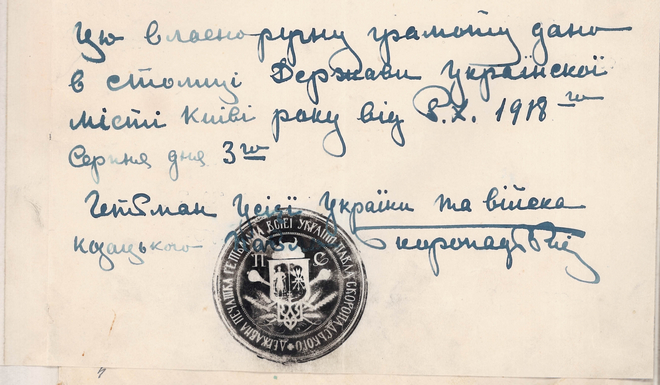 Цю власноручну грамоту дано
в столиці Держави Української
місті Київі року від Р.Х. 1918 го
Серпня дня 3 го
Гетьман Усієї України та війська
козацького Павло Скоропадський
ДЕРЖАВНА ПЕЧАТКА ГЕТЬМАНА ВСЕЇ УКРАЇНИ ПАВЛА СКОРОПАДСЬКОГО
П С